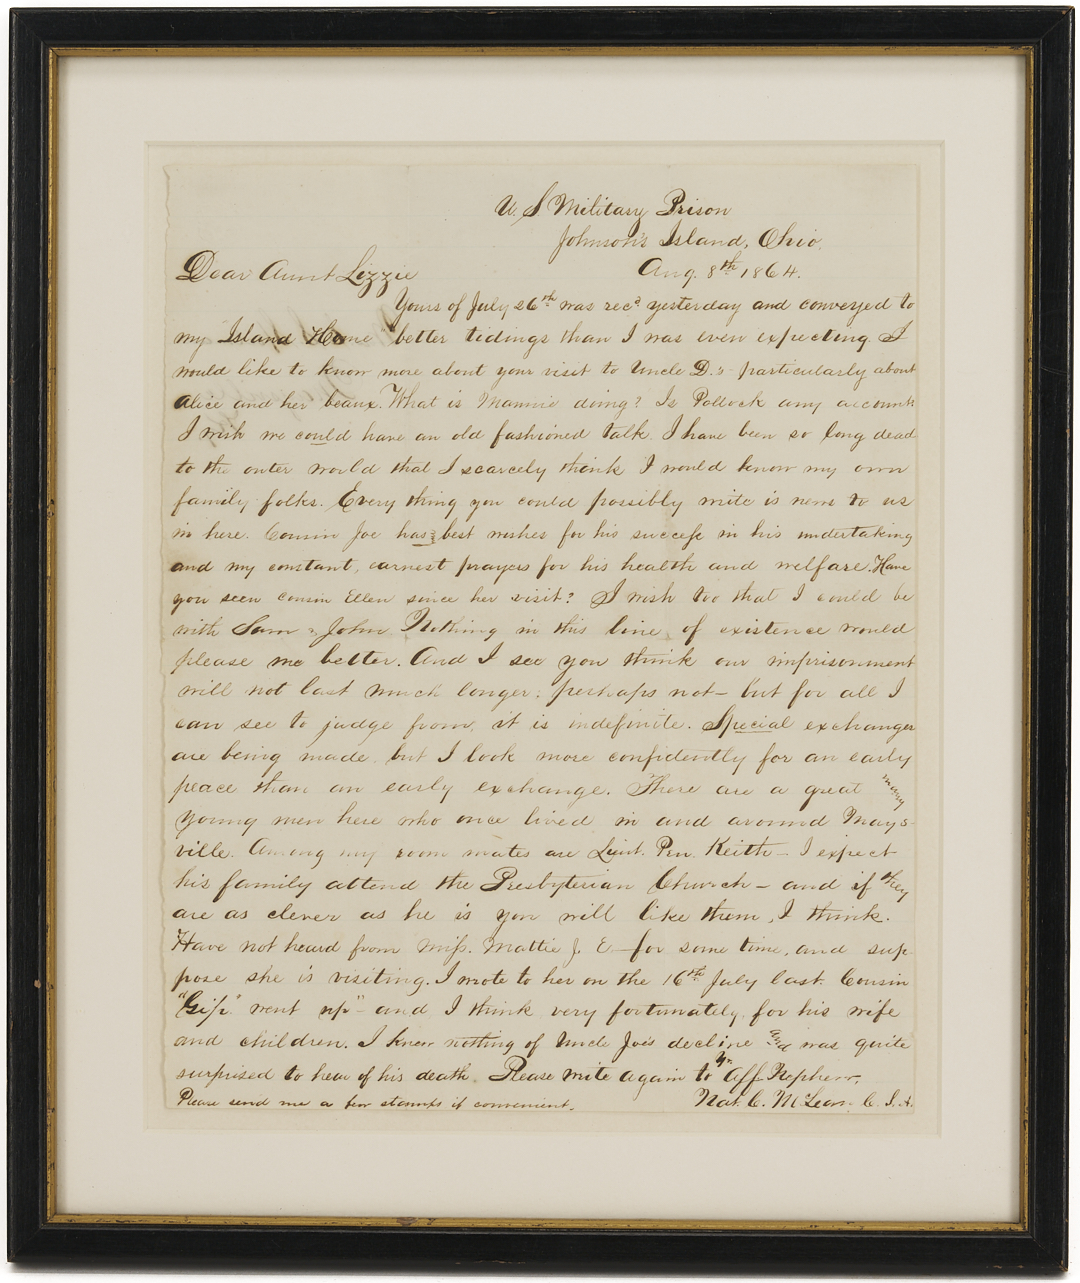 U. S Military Prison
Johnson's Island, Ohio.
Aug. 8th 1864.
Dear Aunt Lizzie
Yours of July 26th was recd yesterday and conveyed to
my Island Home" better tidings than I was even expecting. I
would like to know more about your visit to Uncle D.'s - particularly about
Alice and her beaux. What is Mannie doing? Is Pollock any account.
I wish we could have an old fashioned talk. I have been so long dead
to the outer world that I scarcely think I would know my own
family folks. Every thing you could possibly write is news to us
in here. Cousin Joe has best wishes for his success in his undertaking
and my constant, earnest prayers for his health and welfare. Have
you seen cousin Ellen since her visit? I wish too that I could be
with Sam & John. Nothing in this line of existence would
please me better. And I see you think our imprisonment
will not last much longer: perhaps not - but for all I
can see to judge from, it is indefinite. Special exchanges
are being made, but I look more confidently for an early
peace than an early exchange. There are a great many
young men here who once lived in and around Mays-
ville. Among my room mates are Lieut. Pen. Keith - I expect
his family attend the Presbyterian Church - and if they
are as clever as he is you will like them, I think.
Have not heard from Miss. Mattie J. E - for some time, and sup-
pose she is visiting. I wrote to her on the 16th July last. Cousin
"Gip." went up" - and I think very fortunately, for his wife
and children. I knew nothing of Uncle Joe's decline and was quite
surprised to hear of his death. Please write again to Yr. Aff. Nephew,
Please send me a few stamps if convenient.
Nat. C. McLean. C. S. A.